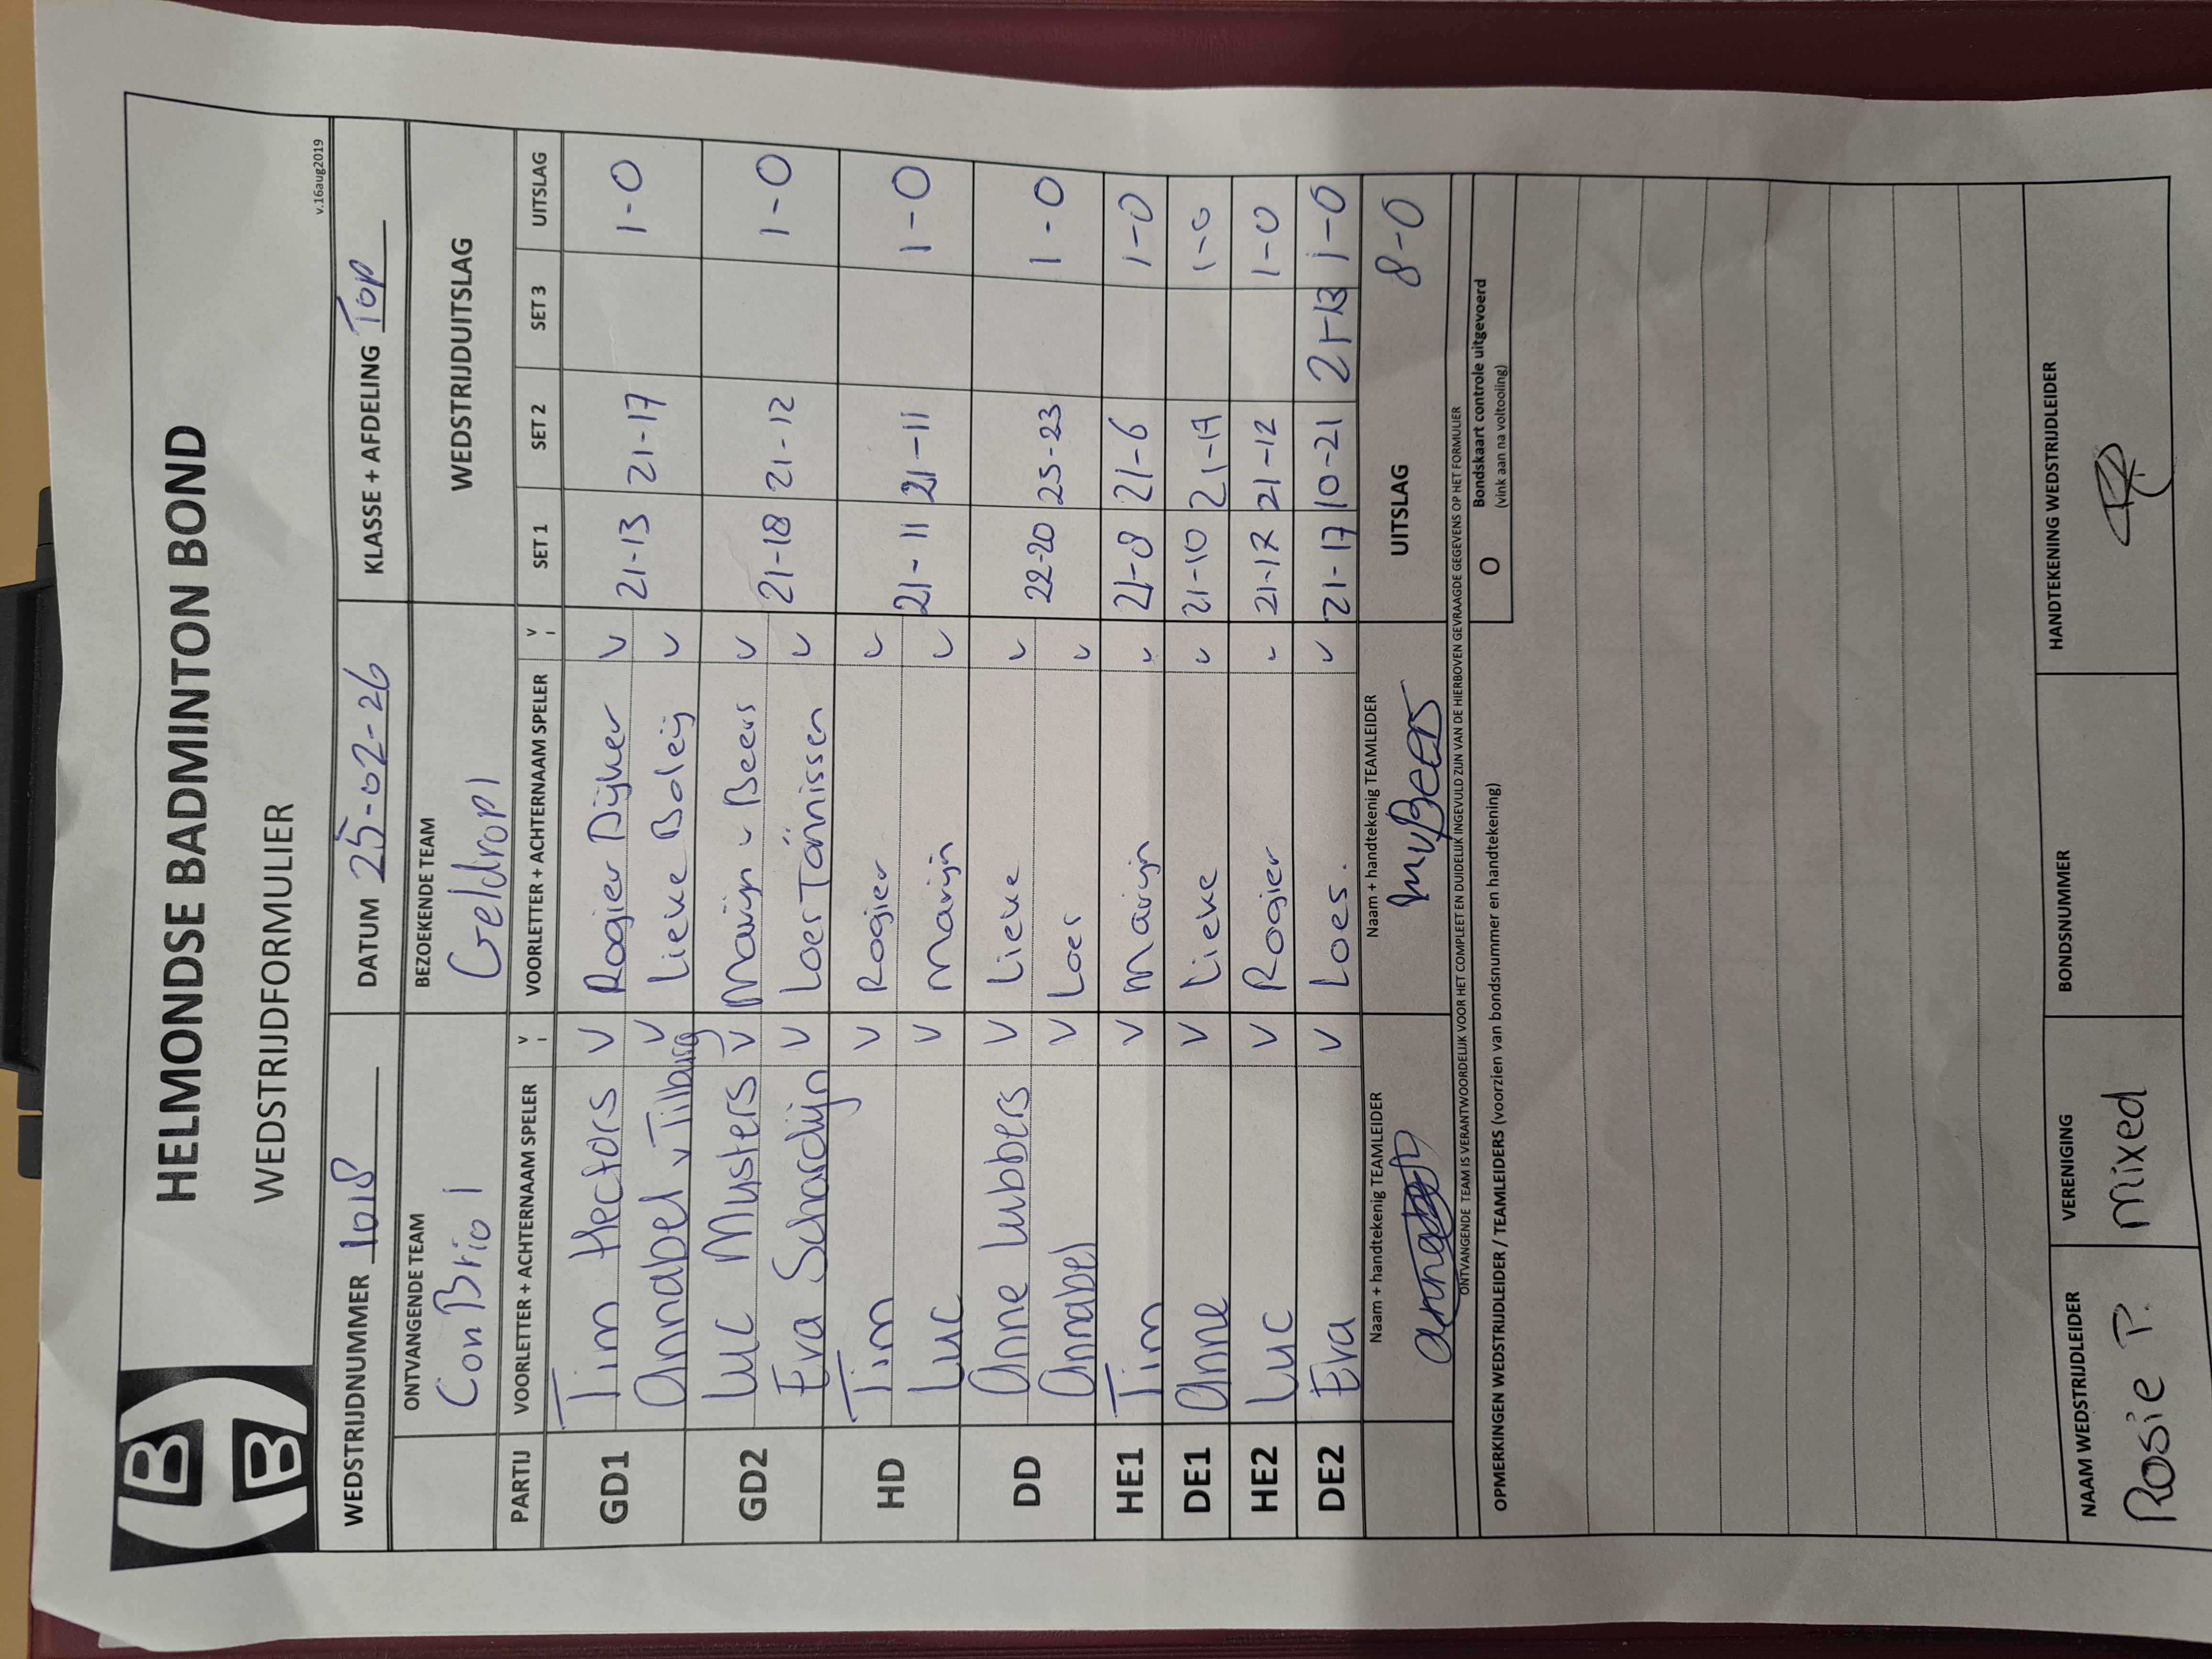 HELMONDSE BADMINTON BOND
WEDSTRIJDFORMULIER
v.16aug2019
WEDSTRIJDNUMMER 1018 DATUM 25-02-26 KLASSE + AFDELING Top
ONTVANGENDE TEAM BEZOEKENDE TEAM WEDSTRIJDUITSLAG
Con Brio 1 Geldrop 1
PARTIJ VOORLETTER + ACHTERNAAM SPELER V VOORLETTER + ACHTERNAAM SPELER V SET 1 SET 2 SET 3 UITSLAG
GD1 Tim Hectors V Rogier Dijker V 21-13 21-17 1-0
Annabel v Tilburg V Lieke Boleij V
GD2 Luc Musters V Marijn v Beers V 21-18 21-12 1-0
Eva Schardijn V Loes Tönnissen V
HD Tim V Rogier V 21-11 21-11 1-0
Luc V Marijn V
DD Anne Lubbers V Lieke V 22-20 25-23 1-0
Annabel V Loes V
HE1 Tim V Marijn V 21-8 21-6 1-0
DE1 Anne V Lieke V 21-10 21-17 1-0
HE2 Luc V Rogier V 21-17 21-12 1-0
DE2 Eva V Loes. V 21-17 10-21 21-13 1-0
Naam + handtekenig TEAMLEIDER Naam + handtekenig TEAMLEIDER UITSLAG 8-0
MvBeers
ONTVANGENDE TEAM IS VERANTWOORDELIJK VOOR HET COMPLEET EN DUIDELIJK INGEVULD ZIJN VAN DE HIERBOVEN GEVRAAGDE GEGEVENS OP HET FORMULIER
OPMERKINGEN WEDSTRIJDLEIDER / TEAMLEIDERS (voorzien van bondsnummer en handtekening)
O Bondskaart controle uitgevoerd
(vink aan na voltooiing)
NAAM WEDSTRIJDLEIDER VERENIGING BONDSNUMMER HANDTEKENING WEDSTRIJDLEIDER
Rosie P. mixed